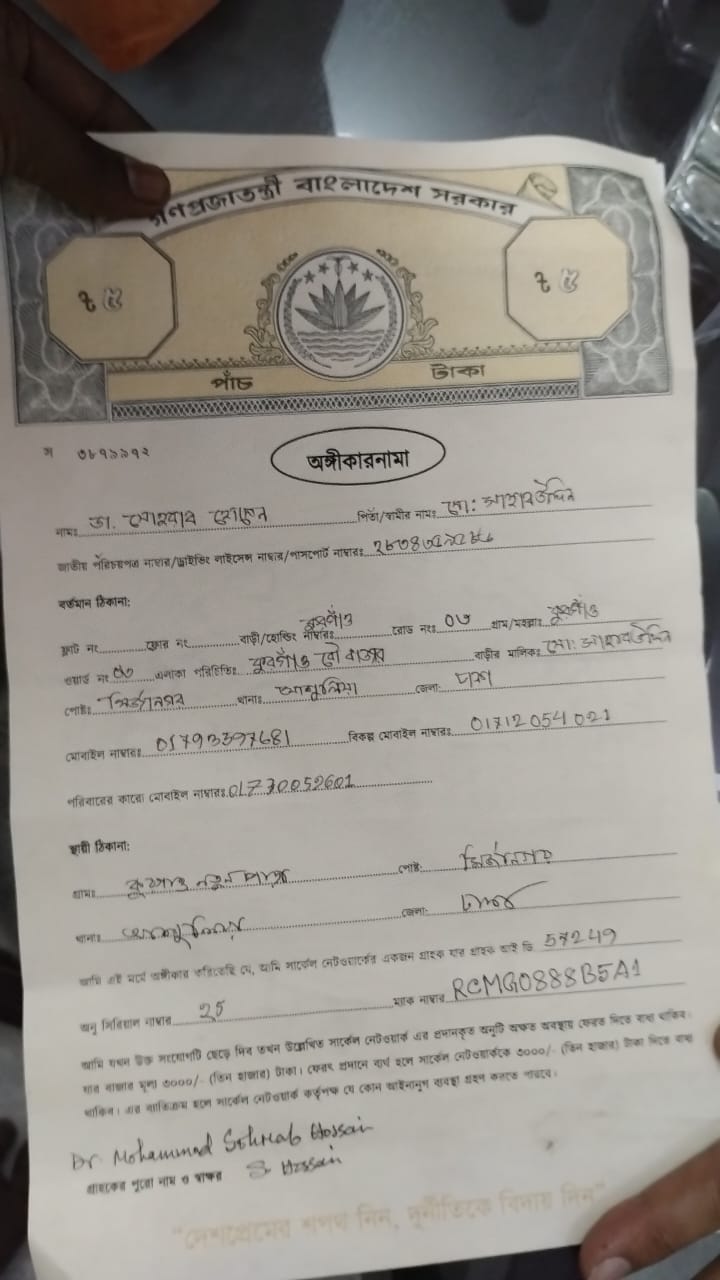 গণপ্রজাতন্ত্রী বাংলাদেশ সরকার
৳ ৫ ৳ ৫
পাঁচ টাকা
অঙ্গীকারনামা
নামঃ ডা. সোহরাব হোসেন পিতা/স্বামীর নামঃ মো:
জাতীয় পরিচয়পত্র নাম্বার/ড্রাইভিং লাইসেন্স নাম্বার/পাসপোর্ট নাম্বারঃ
বর্তমান ঠিকানা:
ফ্লাট নং ফ্লোর নং বাড়ী/হোল্ডিং নাম্বারঃ রোড নংঃ ০৬ গ্রাম/মহল্লাঃ
ওয়ার্ড নং ০৬ এলাকা পরিচিতিঃ বাজার বাড়ীর মালিকঃ মো:
পোষ্টঃ মির্জানগর থানাঃ আশুলিয়া জেলা: ঢাকা
মোবাইল নাম্বারঃ 01793397681 বিকল্প মোবাইল নাম্বারঃ 01712054021
পরিবারের কারো মোবাইল নাম্বারঃ 01730052601
স্থায়ী ঠিকানা:
গ্রামঃ নতুন পাড়া পোষ্ট: মির্জানগর
থানাঃ আশুলিয়া জেলা: ঢাকা
আমি এই মর্মে অঙ্গীকার করিতেছি যে, আমি সার্কেল নেটওয়ার্কের একজন গ্রাহক যার গ্রাহক আই ডি 57249
অনু সিরিয়াল নাম্বার 25 ম্যাক নাম্বার RCMG0888B5A1
আমি যখন উক্ত সংযোগটি ছেড়ে দিব তখন উল্লেখিত সার্কেল নেটওয়ার্ক এর প্রদানকৃত অনুটি অক্ষত অবস্থায় ফেরত দিতে বাধ্য থাকিব।
যার বাজার মূল্য ৩০০০/- (তিন হাজার) টাকা। ফেরৎ প্রদানে ব্যর্থ হলে সার্কেল নেটওয়ার্ককে ৩০০০/- (তিন হাজার) টাকা দিতে বাধ্য
থাকিব। এর ব্যতিক্রম হলে সার্কেল নেটওয়ার্ক কর্তৃপক্ষ যে কোন আইনানুগ ব্যবস্থা গ্রহন করতে পারবে।
Dr. Mohammad Sohrab Hossain
গ্রাহকের পুরো নাম ও স্বাক্ষর S. Hossain
"দেশপ্রেমের শপথ নিন, দুর্নীতিকে বিদায় দিন"